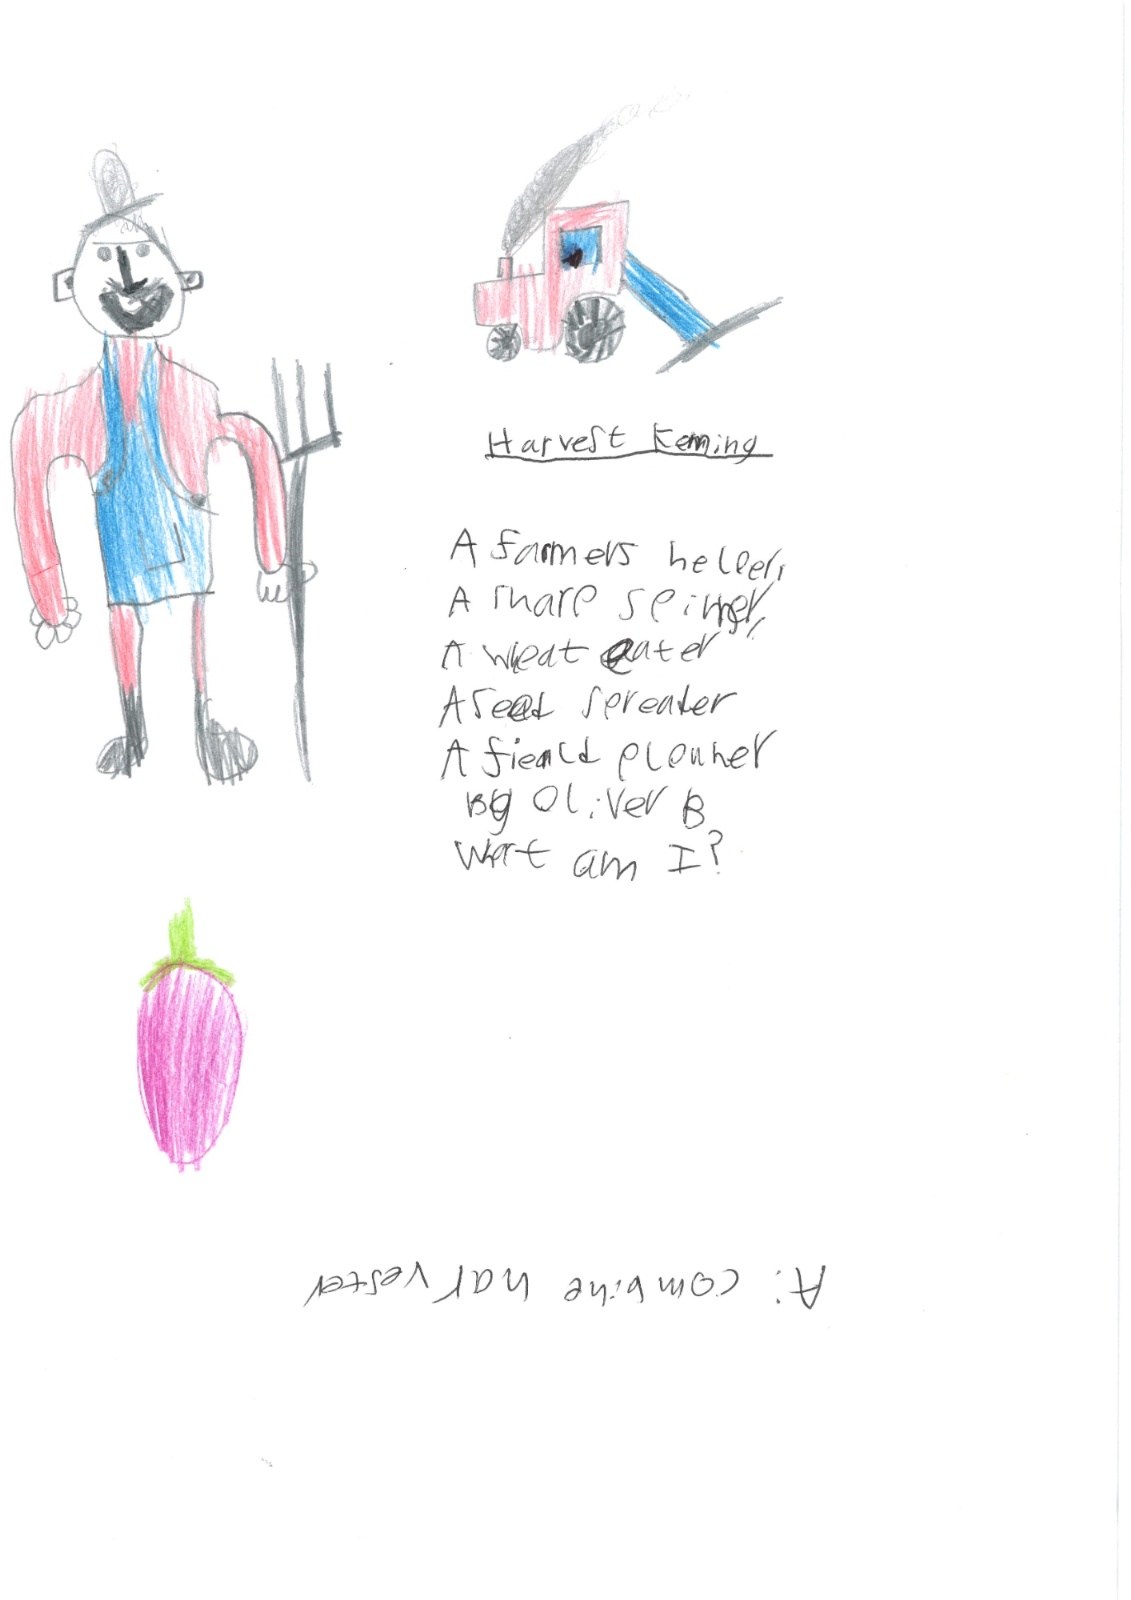 Harvest Kenning
A farmers helper,
A sharp spinner,
A wheat eater
A seed spreader
A fieald plouher
By Oliver B
What am I?
A: combine harvester